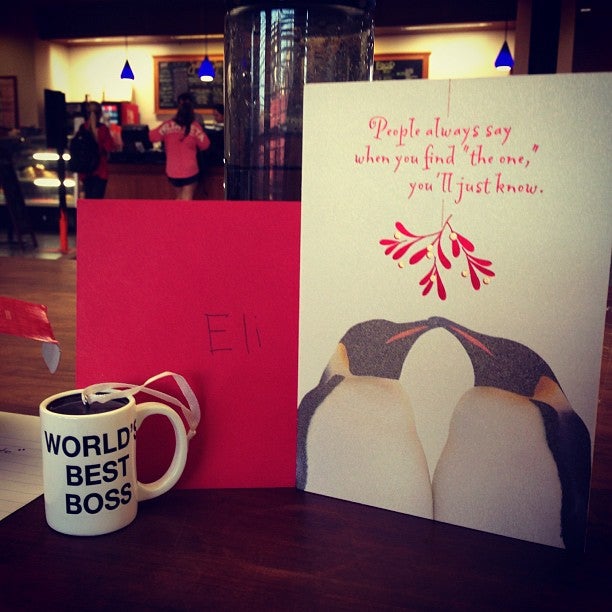 People always say
when you find "the one,"
you'll just know.
Eli
WORLD'S
BEST
BOSS